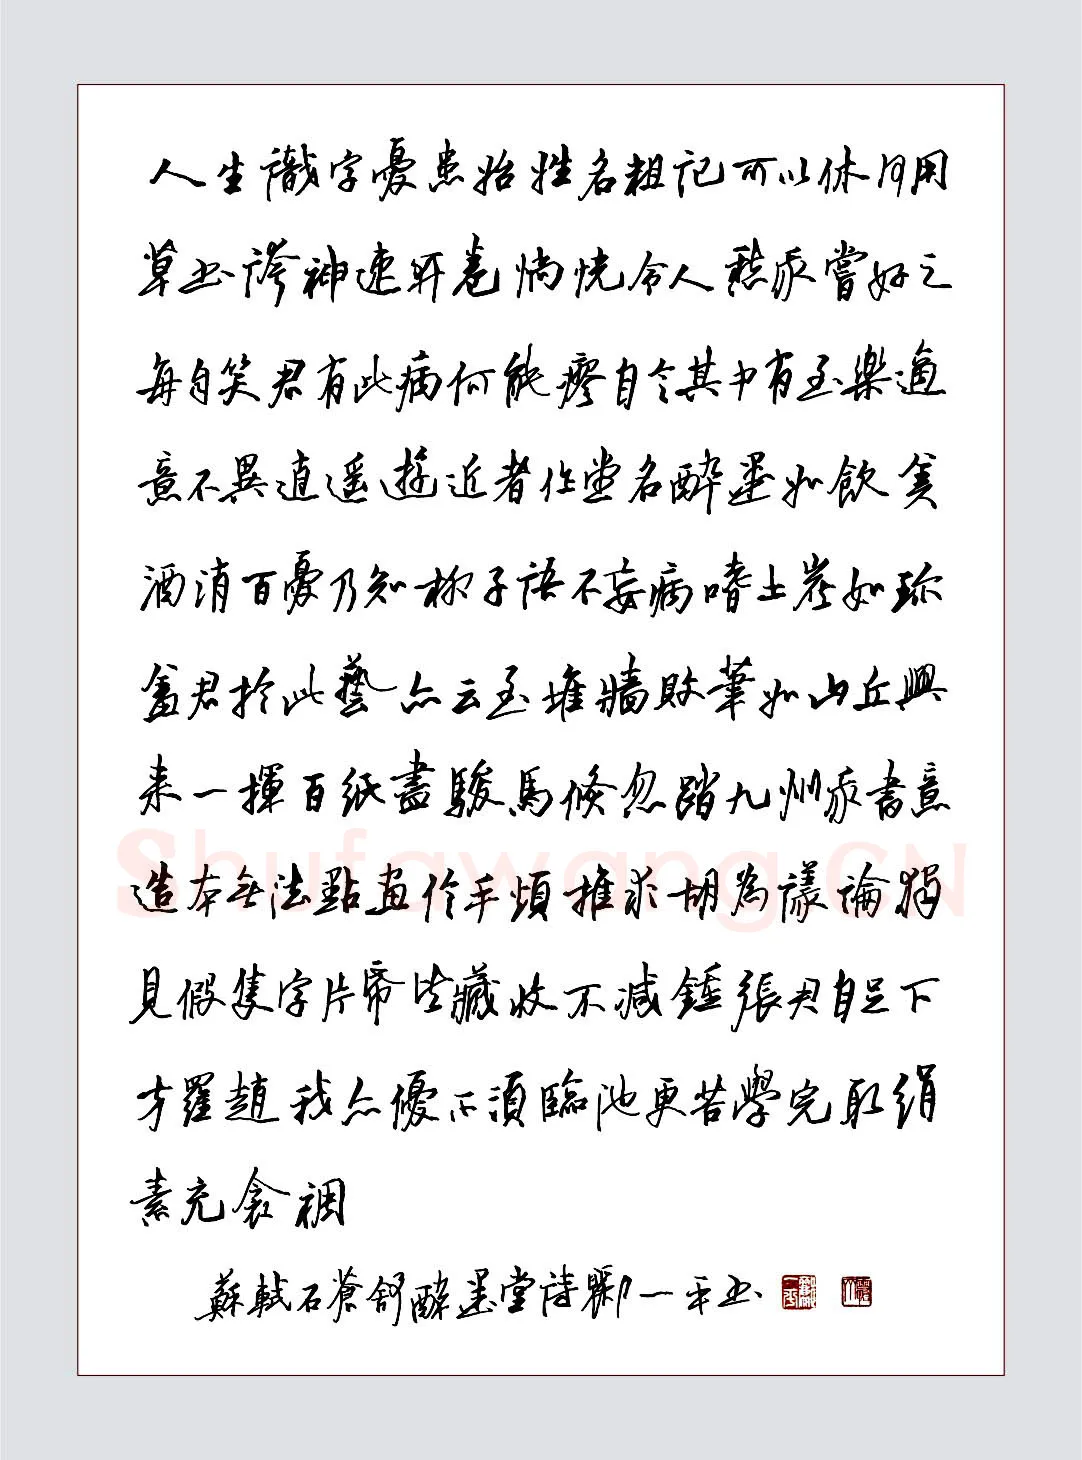 人生識字憂患始姓名粗記可以休何用
草书誇神速开卷惝恍令人愁我嘗好之
每自笑君有此病何能瘳自言其中有至樂適
意不異逍遥遊近者作堂名醉墨如飲美
酒消百憂乃知柳子語不妄病嗜土炭如珍
羞君於此藝亦云至堆牆敗筆如山丘興
来一揮百紙盡駿馬倏忽踏九州我書意
造本无法點画信手煩推求胡為議論獨
見假隻字片帋皆藏收不减鍾張君自足下
方羅趙我亦優不須臨池更苦學完取絹
素充衾裯
蘇軾石蒼舒醉墨堂詩劉一平书
Shufawang.CN